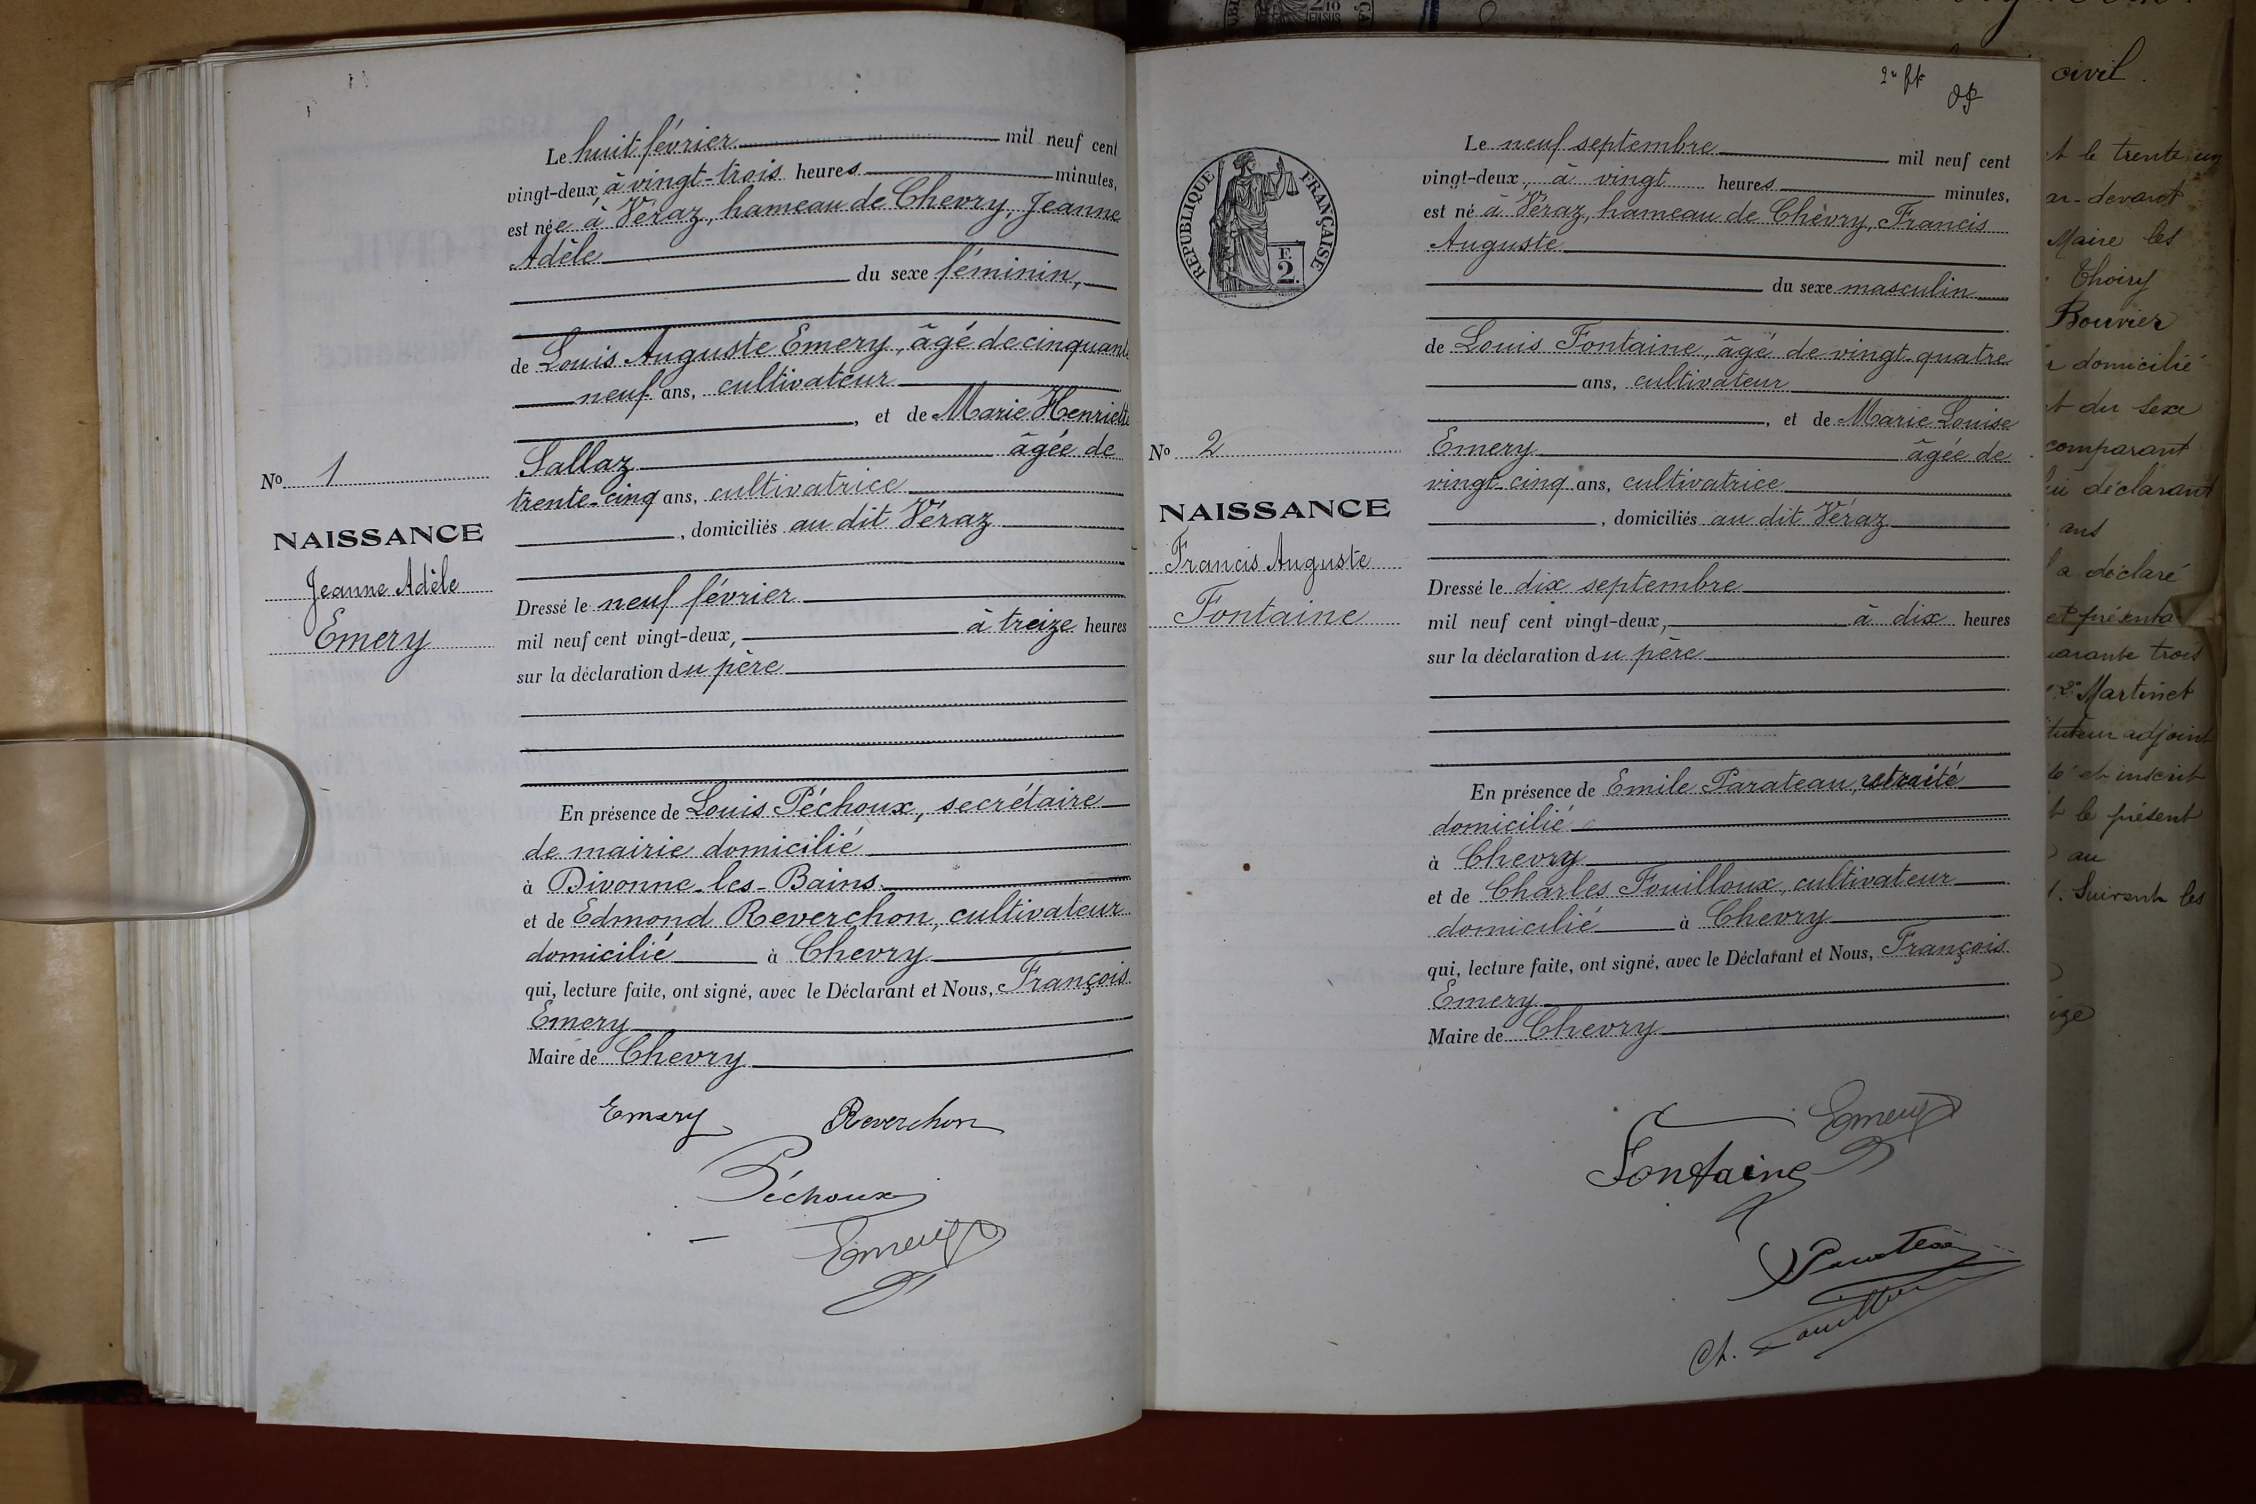 Le huit février mil neuf cent
vingt-deux, à vingt-trois heures minutes,
est née à Véraz, hameau de Chevry, Jeanne
Adèle
du sexe féminin,
de Louis Auguste Emery, âgé de cinquante
neuf ans, cultivateur
, et de Marie Henriette
Sallaz âgée de
trente-cinq ans, cultivatrice
, domiciliés au dit Véraz
No 1
NAISSANCE
Jeanne Adèle
Emery
Dressé le neuf février
mil neuf cent vingt-deux, à treize heures
sur la déclaration du père
En présence de Louis Péchoux, secrétaire
de mairie domicilié
à Divonne-les-Bains
et de Edmond Reverchon, cultivateur
domicilié à Chevry
qui, lecture faite, ont signé, avec le Déclarant et Nous, François
Emery
Maire de Chevry
Emery Reverchon
Péchoux
Emery
2
RÉPUBLIQUE FRANÇAISE
F.
2.
Le neuf septembre mil neuf cent
vingt-deux, à vingt heures minutes,
est né à Véraz, hameau de Chevry, Francis
Auguste
du sexe masculin
de Louis Fontaine, âgé de vingt-quatre
ans, cultivateur
, et de Marie Louise
Emery âgée de
vingt-cinq ans, cultivatrice
, domiciliés au dit Véraz
No 2
NAISSANCE
Francis Auguste
Fontaine
Dressé le dix septembre
mil neuf cent vingt-deux, à dix heures
sur la déclaration du père
En présence de Emile Parateau, retraité
domicilié
à Chevry
et de Charles Fouilloux, cultivateur
domicilié à Chevry
qui, lecture faite, ont signé, avec le Déclarant et Nous, François
Emery
Maire de Chevry
Emery
Fontaine
Parateau
Ch. Fouilloux
civil.
le trente un
devant
Maire les
Thoiry
Bouvier
domicilié
du sexe
comparant
déclarant
ans
a déclaré
et présenta
trois
Martinet
adjoint
et inscrit
le présent
au
Suivent les